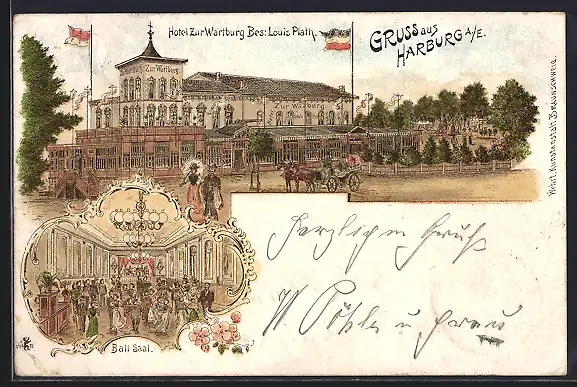 Hotel Zur Wartburg Bes: Louis Plath.
GRUSS aus
HARBURG A/E.
Zur Wartburg
Zur Wartburg
Ball Saal.
Herzlichen Gruß
W. u Frau